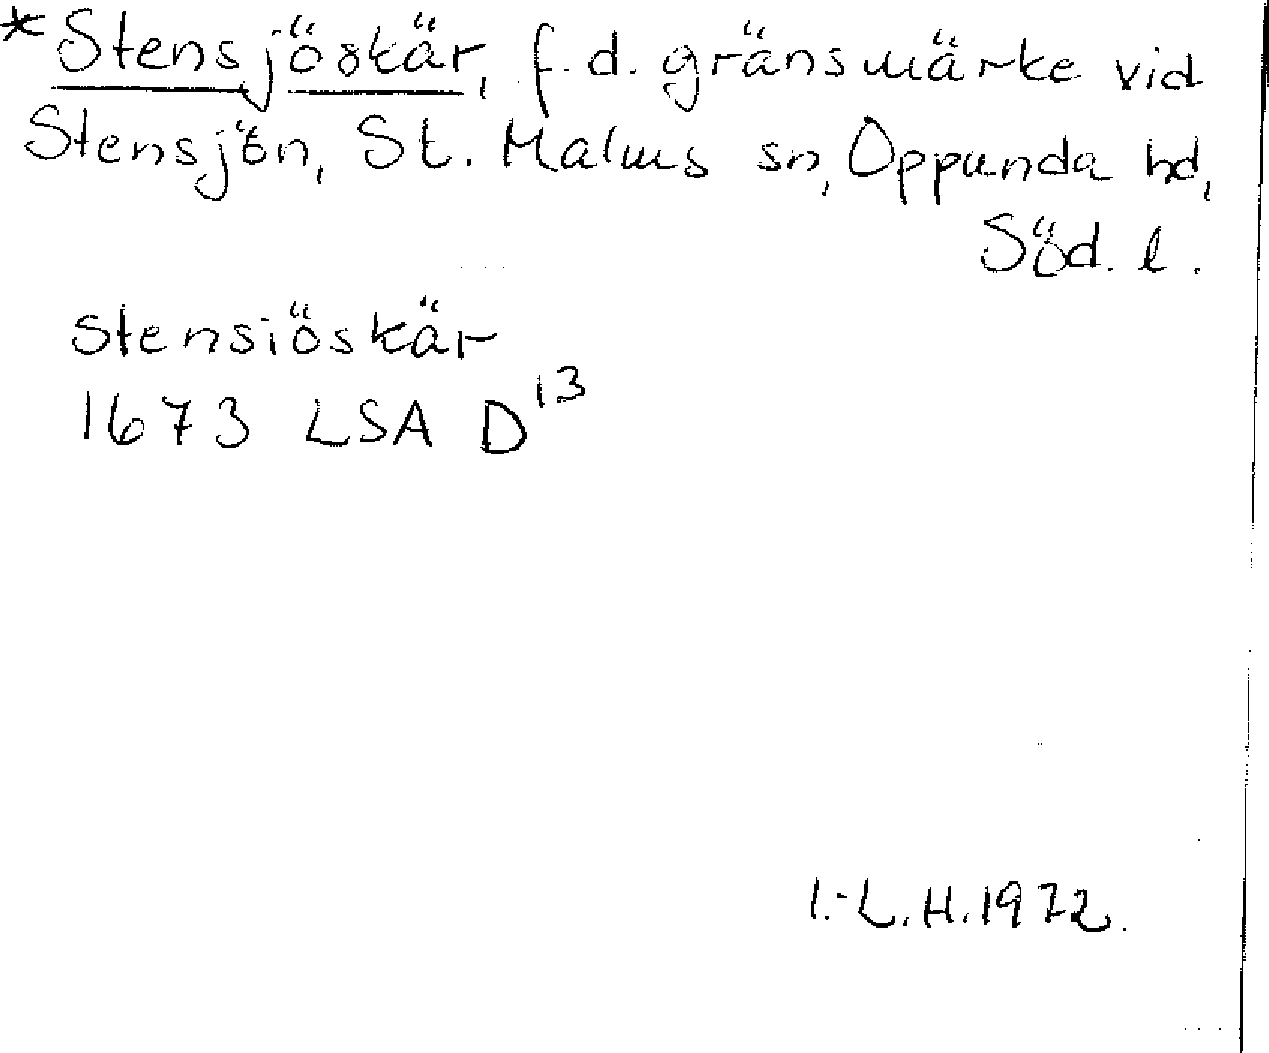 *Stensjöskär, f.d. gränsmärke vid
Stensjön, St. Malms sn, Oppunda hd,
Söd. l.
Stensiöskär
1673 LSA D¹³
I.-L.H. 1972.